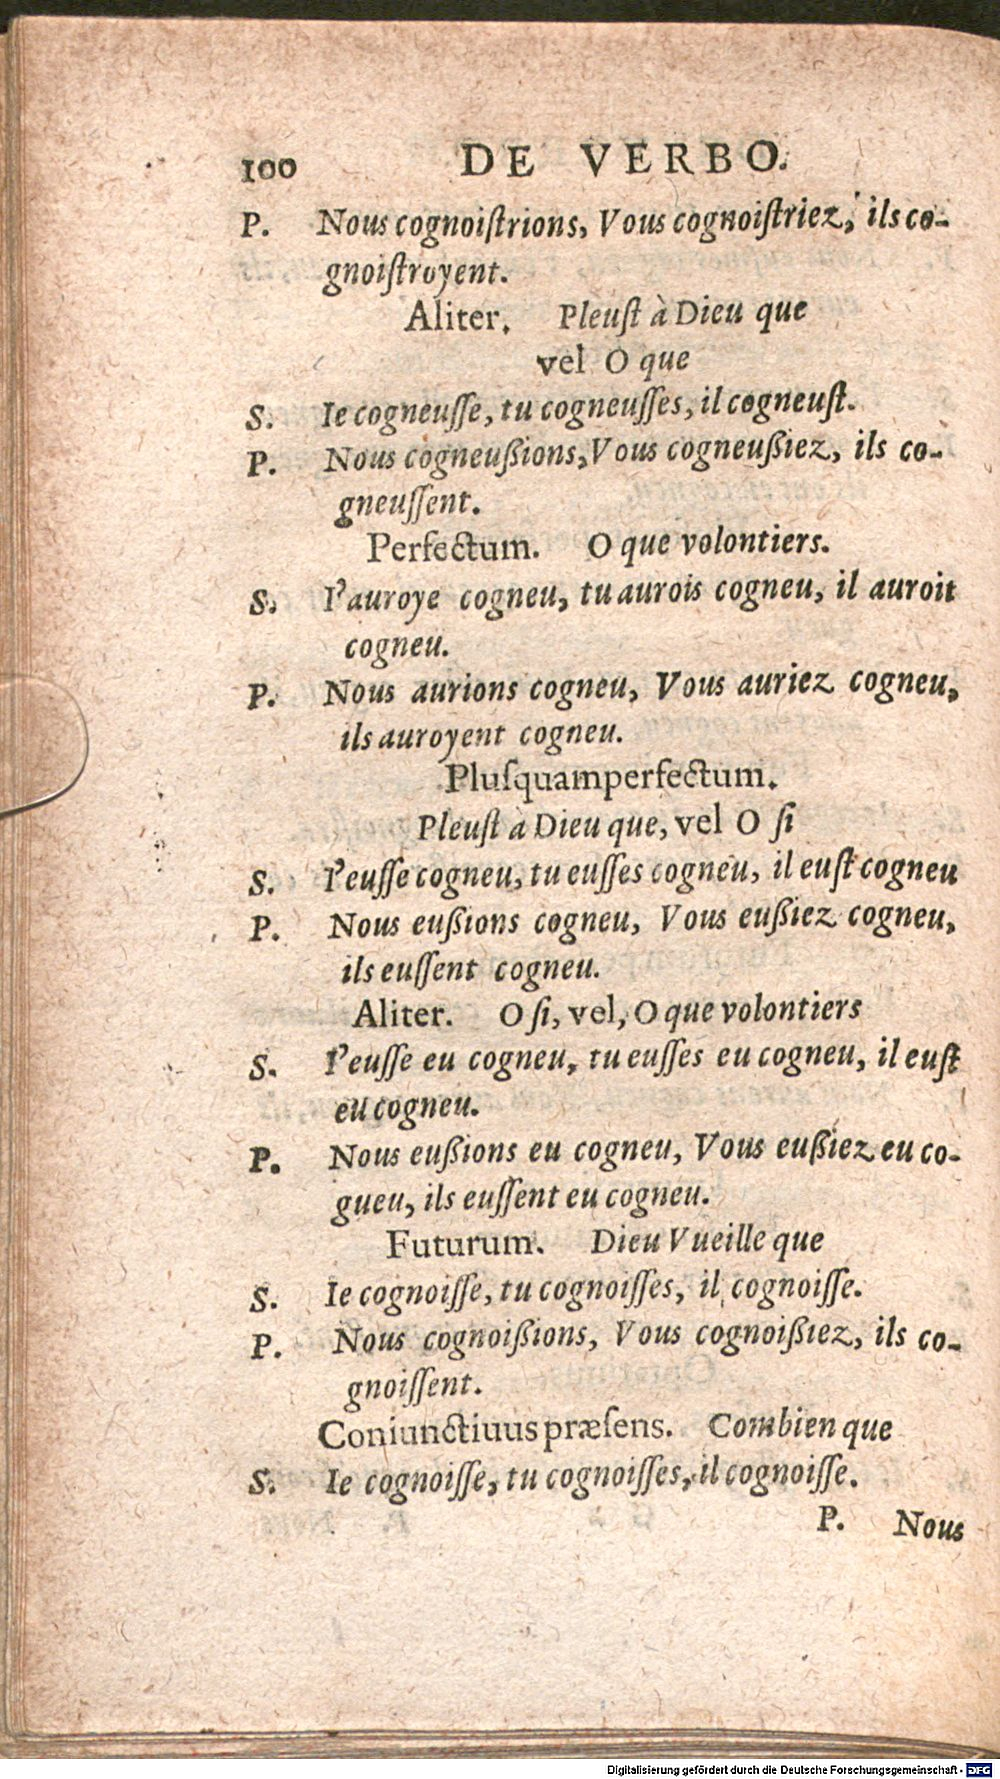 100 DE VERBO.
P. Nous cognoiſtrions, Vous cognoiſtriez, ils co-
gnoiſtroyent.
Aliter. Pleuſt à Dieu que
vel O que
S. Ie cogneuſſe, tu cogneuſſes, il cogneuſt.
P. Nous cogneußions, Vous cogneußiez, ils co-
gneuſſent.
Perfectum. O que volontiers.
S. I'auroye cogneu, tu aurois cogneu, il auroit
cogneu.
P. Nous aurions cogneu, Vous auriez cogneu,
ils auroyent cogneu.
Pluſquamperfectum.
Pleuſt à Dieu que, vel O ſi
S. I'euſſe cogneu, tu euſſes cogneu, il euſt cogneu
P. Nous eußions cogneu, Vous eußiez cogneu,
ils euſſent cogneu.
Aliter. O ſi, vel, O que volontiers
S. I'euſſe eu cogneu, tu euſſes eu cogneu, il euſt
eu cogneu.
P. Nous eußions eu cogneu, Vous eußiez eu co-
gueu, ils euſſent eu cogneu.
Futurum. Dieu Vueille que
S. Ie cognoiſſe, tu cognoiſſes, il cognoiſſe.
P. Nous cognoißions, Vous cognoißiez, ils co-
gnoiſſent.
Coniunctiuus præſens. Combien que
S. Ie cognoiſſe, tu cognoiſſes, il cognoiſſe.
P. Nous
Digitalisierung gefördert durch die Deutsche Forschungsgemeinschaft - DFG